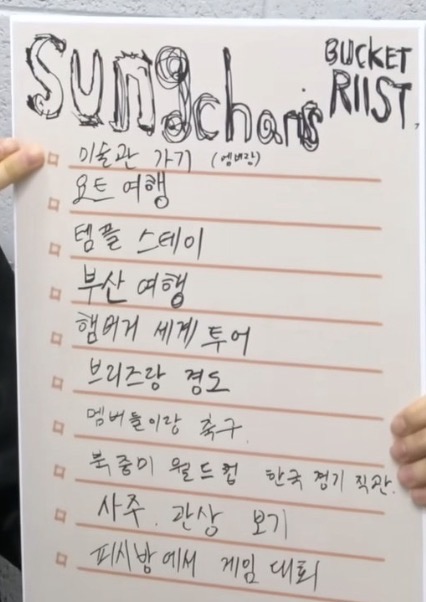 Sungchan's
BUCKET
RIIST.
미술관 가기 (멤버랑)
요트 여행
템플 스테이
부산 여행
햄버거 세계 투어
브리즈랑 경도
멤버들이랑 축구.
북중미 월드컵 한국 경기 직관.
사주. 관상 보기
피시방에서 게임 대회